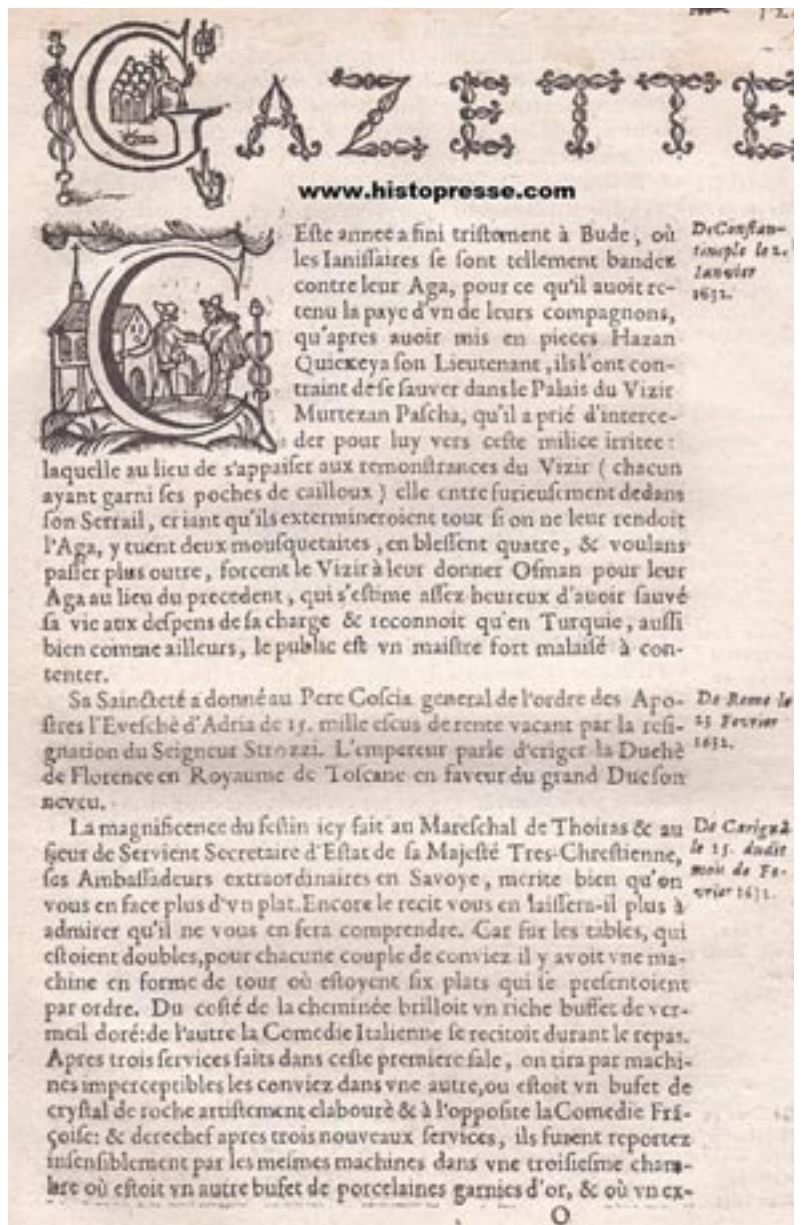 GAZETTE
www.histopresse.com
Ceste annee a fini tristement à Bude, où
les Ianissaires se sont tellement bandez
contre leur Aga, pour ce qu'il auoit re-
tenu la paye d'vn de leurs compagnons,
qu'apres auoir mis en pieces Hazan
Quicxeya son Lieutenant, ils l'ont con-
traint de se sauver dans le Palais du Vizir
Murtezan Pascha, qu'il a prié d'interce-
der pour luy vers ceste milice irritee:
laquelle au lieu de s'appaiser aux remonstrances du Vizir ( chacun
ayant garni ses poches de cailloux ) elle entre furieusement dedans
son Serrail, criant qu'ils extermineroient tout si on ne leur rendoit
l'Aga, y tuent deux mousquetaites, en blessent quatre, & voulans
passer plus outre, forcent le Vizir à leur donner Osman pour leur
Aga au lieu du precedent, qui s'estime assez heureux d'auoir sauvé
sa vie aux despens de sa charge & reconnoit qu'en Turquie, aussi
bien comme ailleurs, le public est vn maistre fort malaisé à con-
tenter.
De Constan-
tinople le 2.
Ianvier
1632.
Sa Saincteté a donné au Pere Coscia general de l'ordre des Apo-
stres l'Evesché d'Adria de 15. mille escus de rente vacant par la resi-
gnation du Seigneur Strozzi. L'empereur parle d'eriger la Duchè
de Florence en Royaume de Toscane en faveur du grand Duc son
neveu.
De Rome le
25 Fevrier
1632.
La magnificence du festin icy fait au Mareschal de Thoiras & au
sieur de Servient Secretaire d'Estat de sa Majesté Tres-Chrestienne,
ses Ambassadeurs extraordinaires en Savoye, merite bien qu'on
vous en face plus d'vn plat. Encore le recit vous en laissera-il plus à
admirer qu'il ne vous en fera comprendre. Car sur les tables, qui
estoient doubles, pour chacune couple de conviez il y avoit vne ma-
chine en forme de tour où estoyent six plats qui se presentoient
par ordre. Du costé de la cheminée brilloit vn riche buffet de ver-
meil doré: de l'autre la Comedie Italienne se recitoit durant le repas.
Apres trois services faits dans ceste premiere sale, on tira par machi-
nes imperceptibles les conviez dans vne autre, ou estoit vn bufet de
crystal de roche artistement elabourè & à l'opposite la Comedie Frã-
çoise: & derechef apres trois nouveaux services, ils furent reportez
insensiblement par les mesmes machines dans vne troisiesme cham-
bre où estoit vn autre bufet de porcelaines garnies d'or, & où vn ex-
De Carignã
le 25. dudit
mois de Fe-
vrier 1632.
O